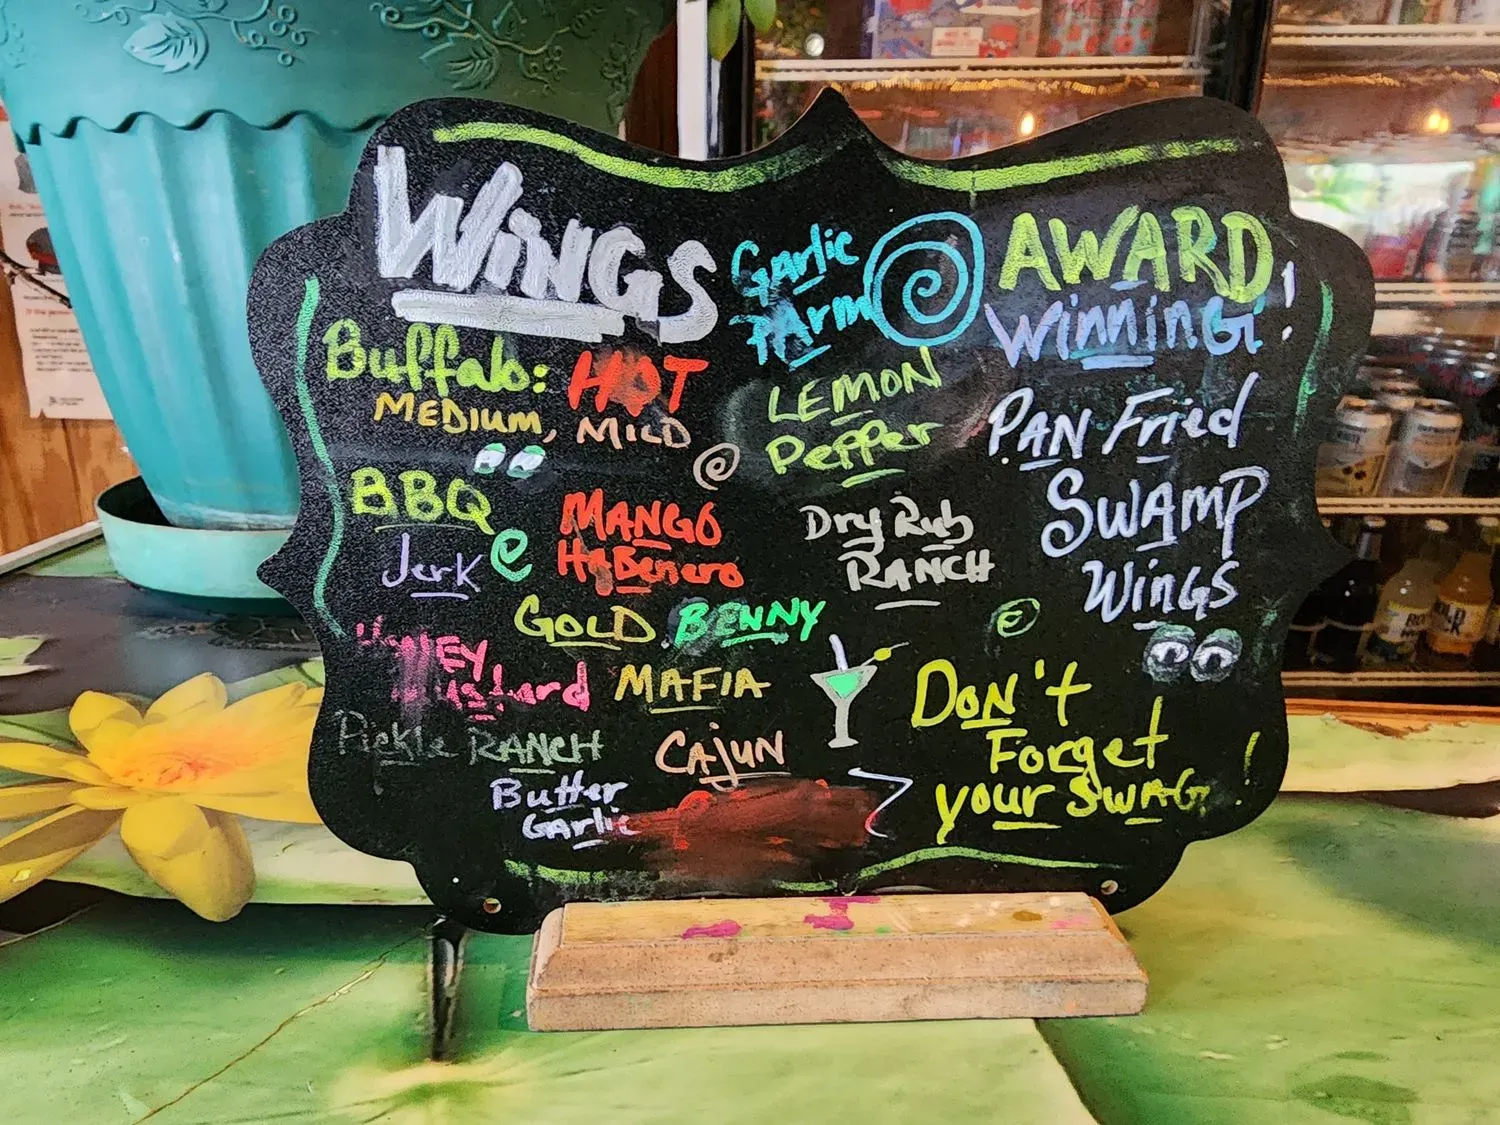 WINGS
Buffalo: HOT
MEDIUM, MILD
BBQ
Jerk
MANGO
HABenero
GOLD BENNY
HONEY
Mustard
MAFIA
Pickle RANCH
CAJUN
Butter
Garlic
Garlic
PArm
LEMON
Pepper
Dry Rub
RANCH
AWARD
WinninG!
PAN Fried
SWAMP
WiNGS
DON't
Forget
your SWAG!